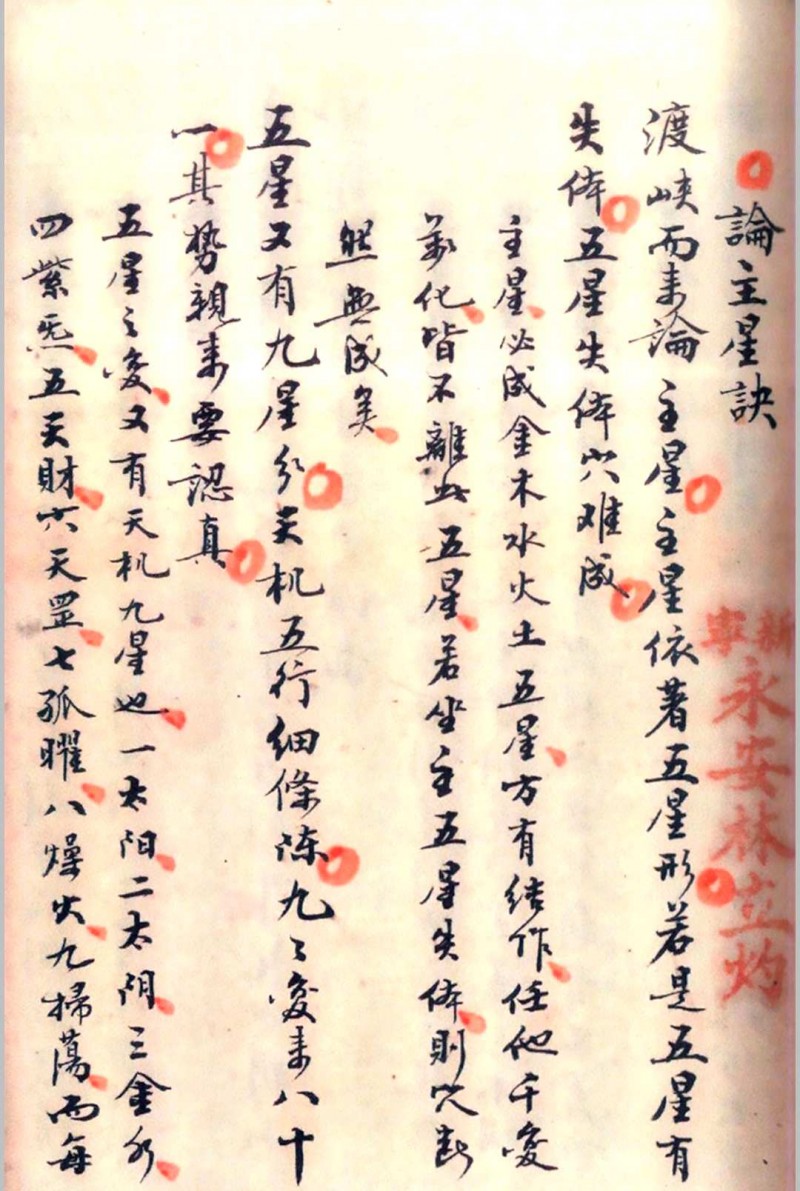 論主星訣
渡峽而来論主星主星依著五星形若是五星有
失体五星失体穴难成
主星必成金木水火土五星方有结作任他千变
萬化皆不離此五星若坐主五星失体則穴断
然無成矣
五星又有九星分天机五行细條陈九〻变来八十
一其势親来要認真
五星之变又有天机九星也一太阳二太阴三金水
四紫炁五天財六天罡七孤曜八燥火九掃蕩而每
新寧
永安林立灼